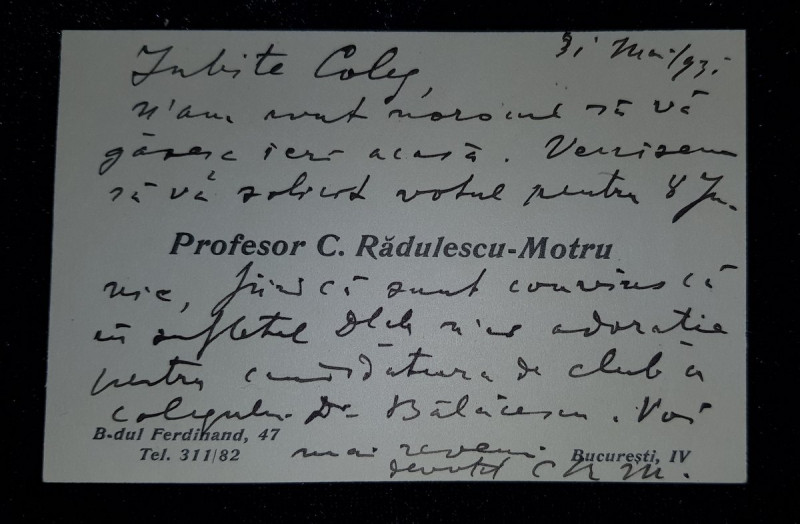 31 Mai/931
Iubite Coleg,
N'am avut norocul să vă
găsesc ieri acasă. Venisem
să vă solicit votul pentru 8 Iu-
Profesor C. Rădulescu-Motru
nie, fiind că sunt convins că
în sufletul Dtale n'ai adorație
pentru candidatura de club a
colegului Dr Bălăcescu. Voi
B-dul Ferdinand, 47
Tel. 311/82
mai reveni.
București, IV
devotat C R M.